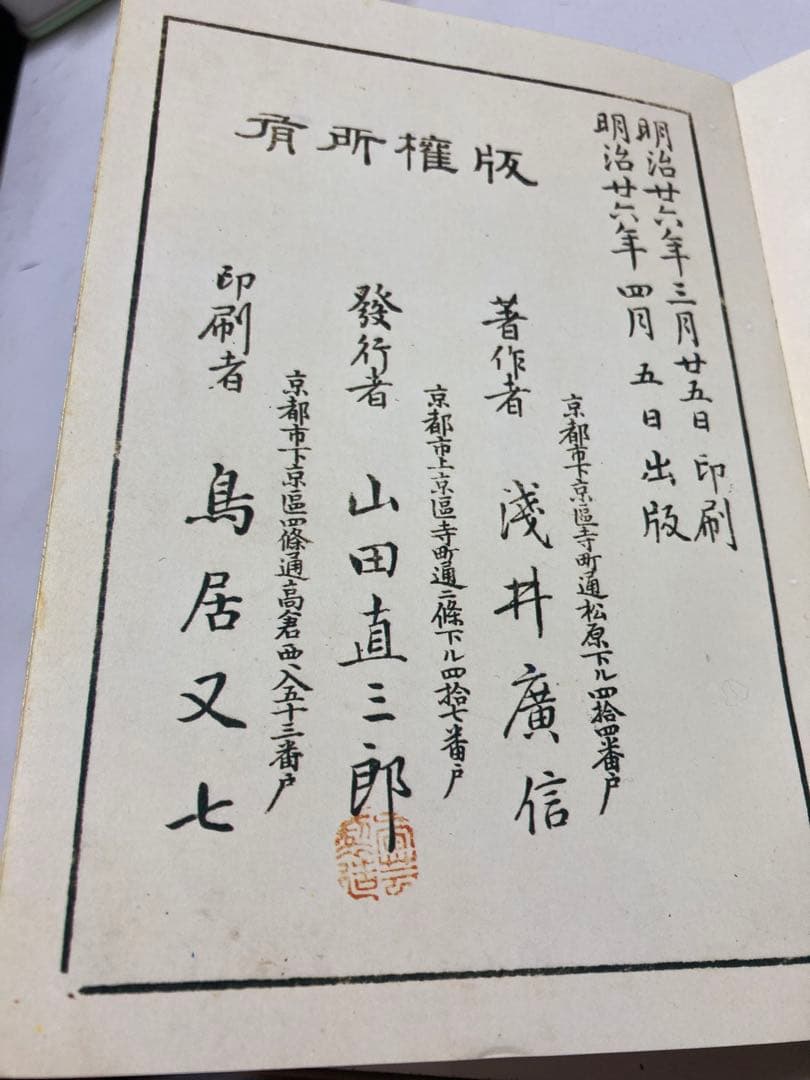 明治廿六年三月廿五日印刷
明治廿六年四月五日出版
版權所有
京都市下京區寺町通松原下ル四拾四番戶
著作者 淺井廣信
京都市上京區寺町通二條下ル四拾七番戶
發行者 山田直三郎
京都市下京區四條通高倉西入五十三番戶
印刷者 鳥居又七